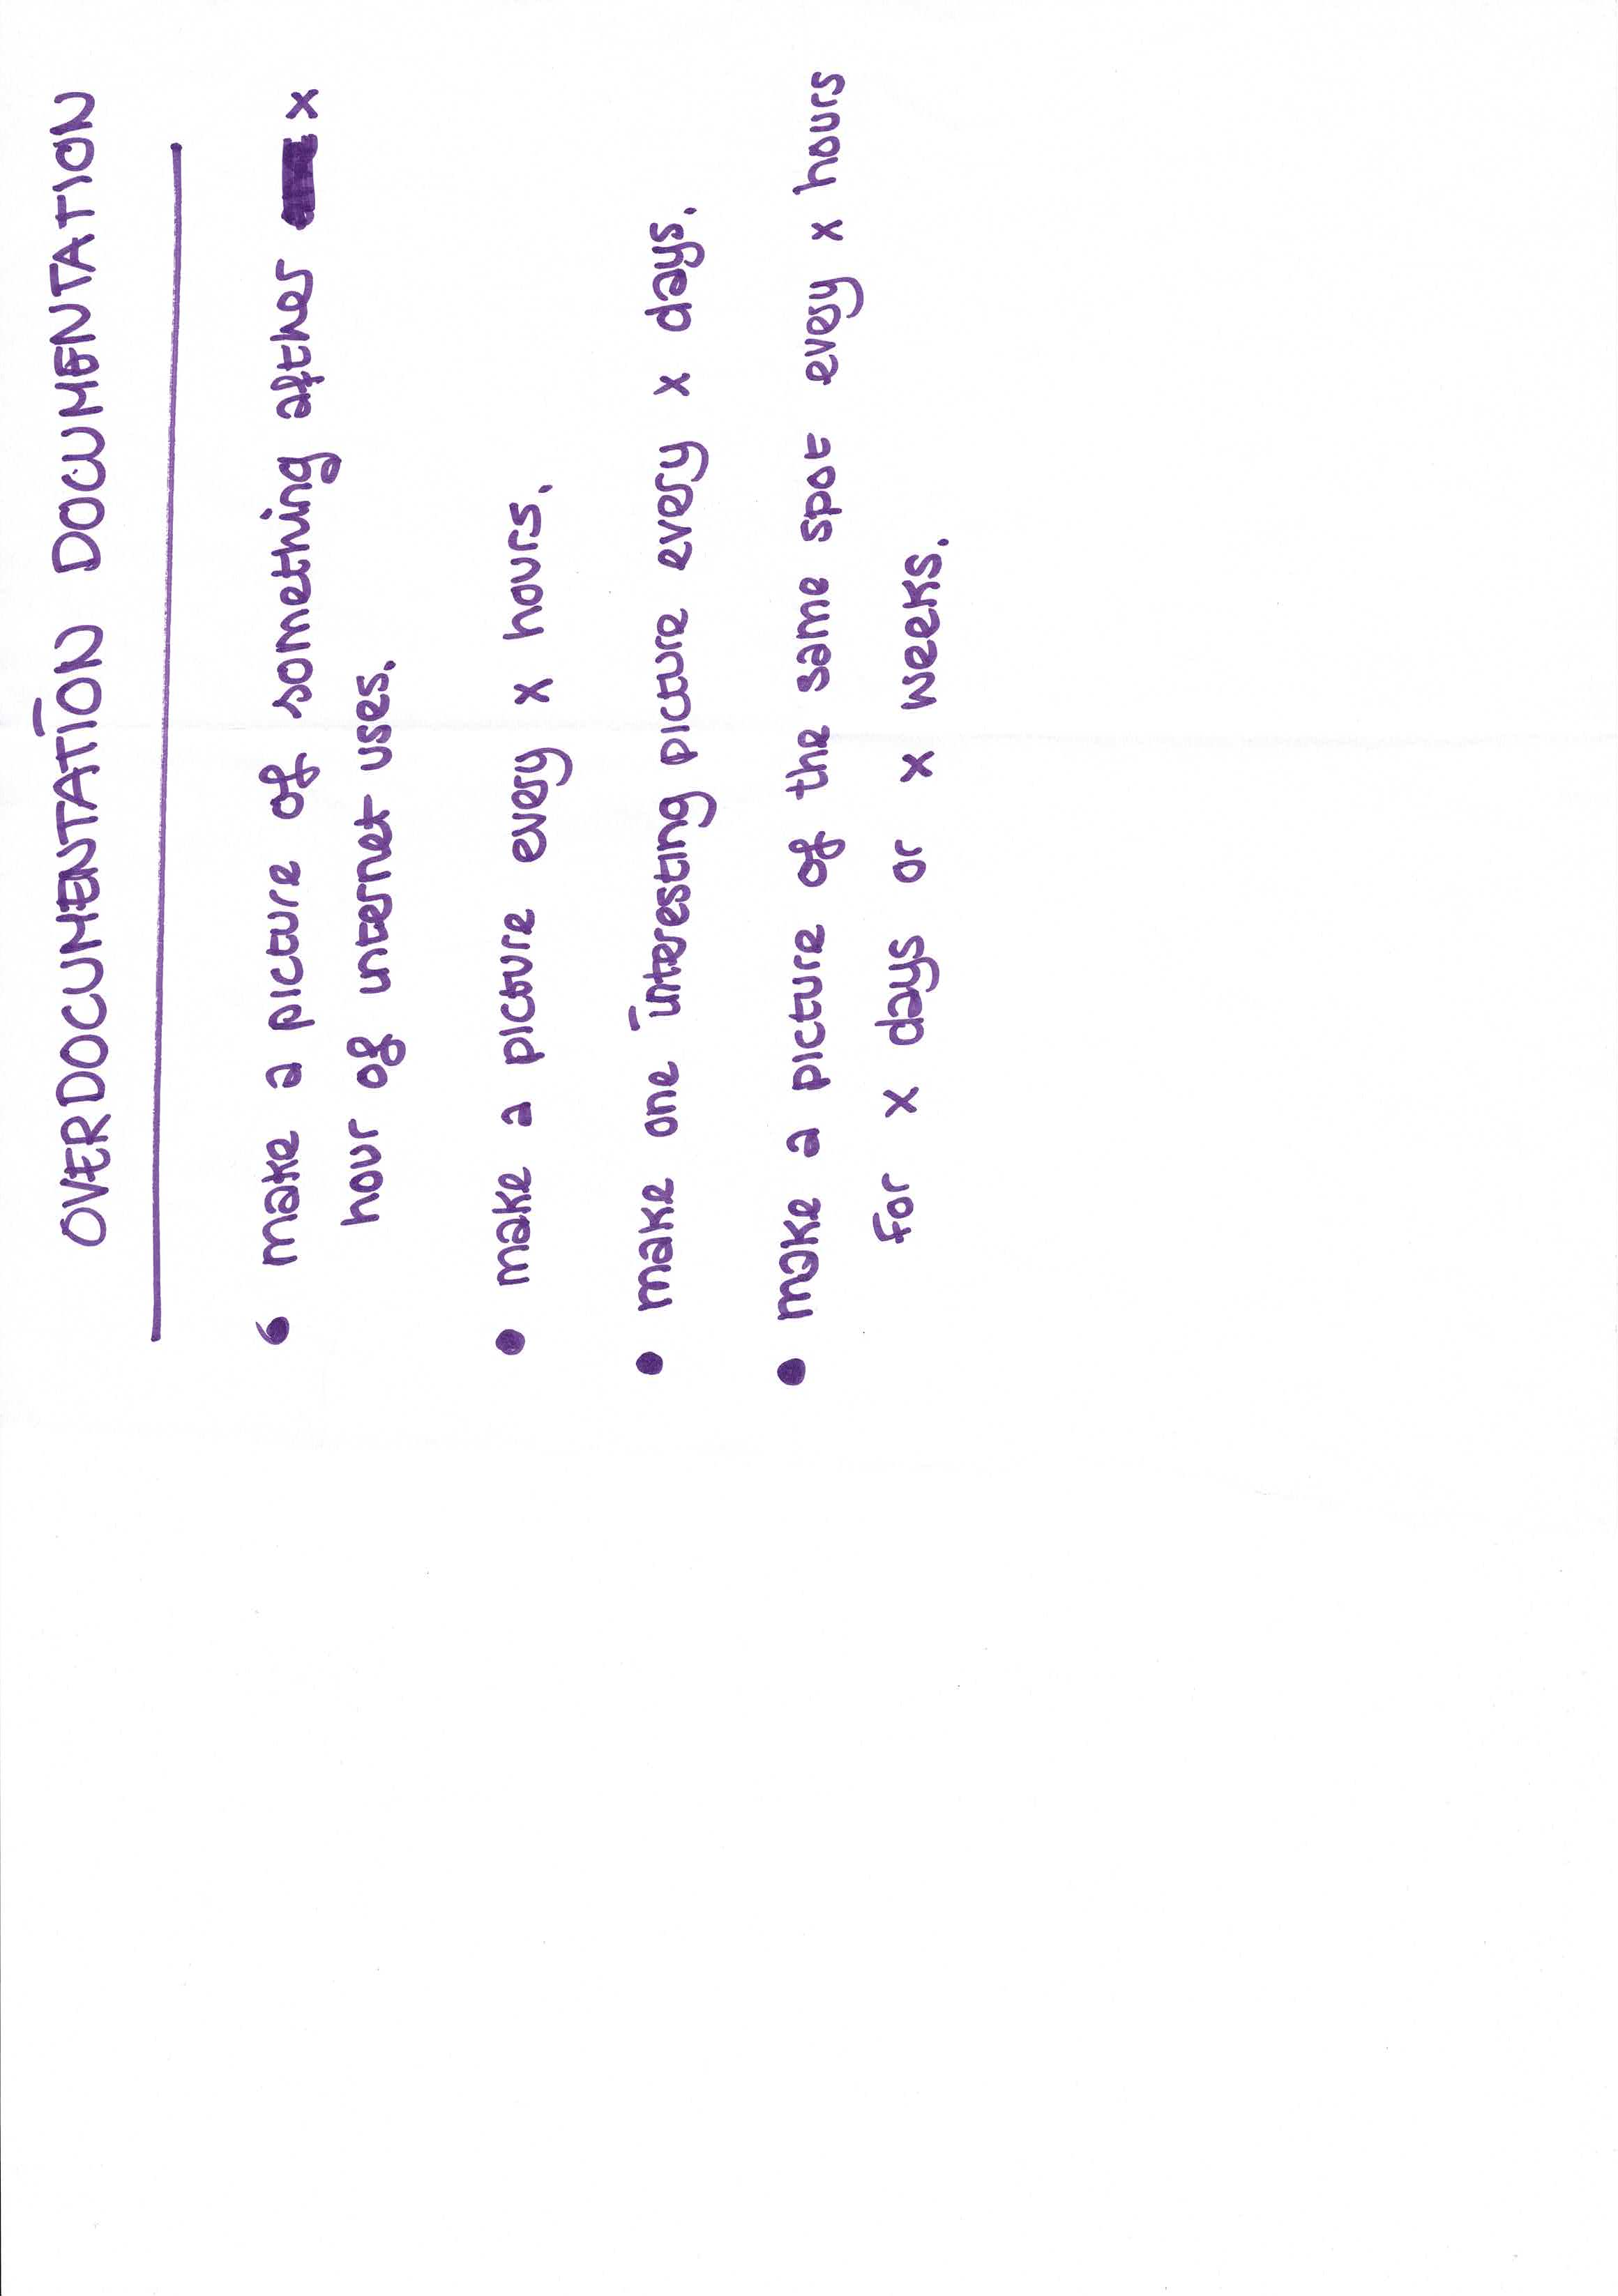 OVERDOCUMENTATION DOCUMENTATION
• make a picture of something afther x
hour of internet uses.
• make a picture every x hours.
• make one interesting picture every x days.
• make a picture of the same spot every x hours
for x days or x weeks.